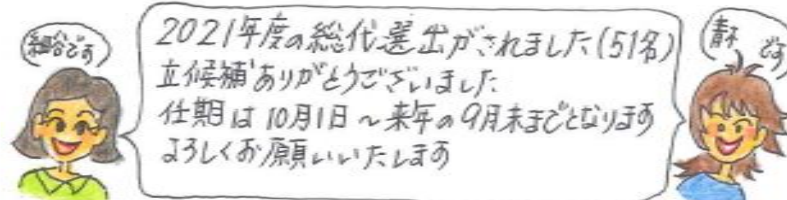 細谷です
2021年度の総代選出がされました(51名)
立候補ありがとうございました
任期は10月1日～来年の9月末までとなります
よろしくお願いいたします
です